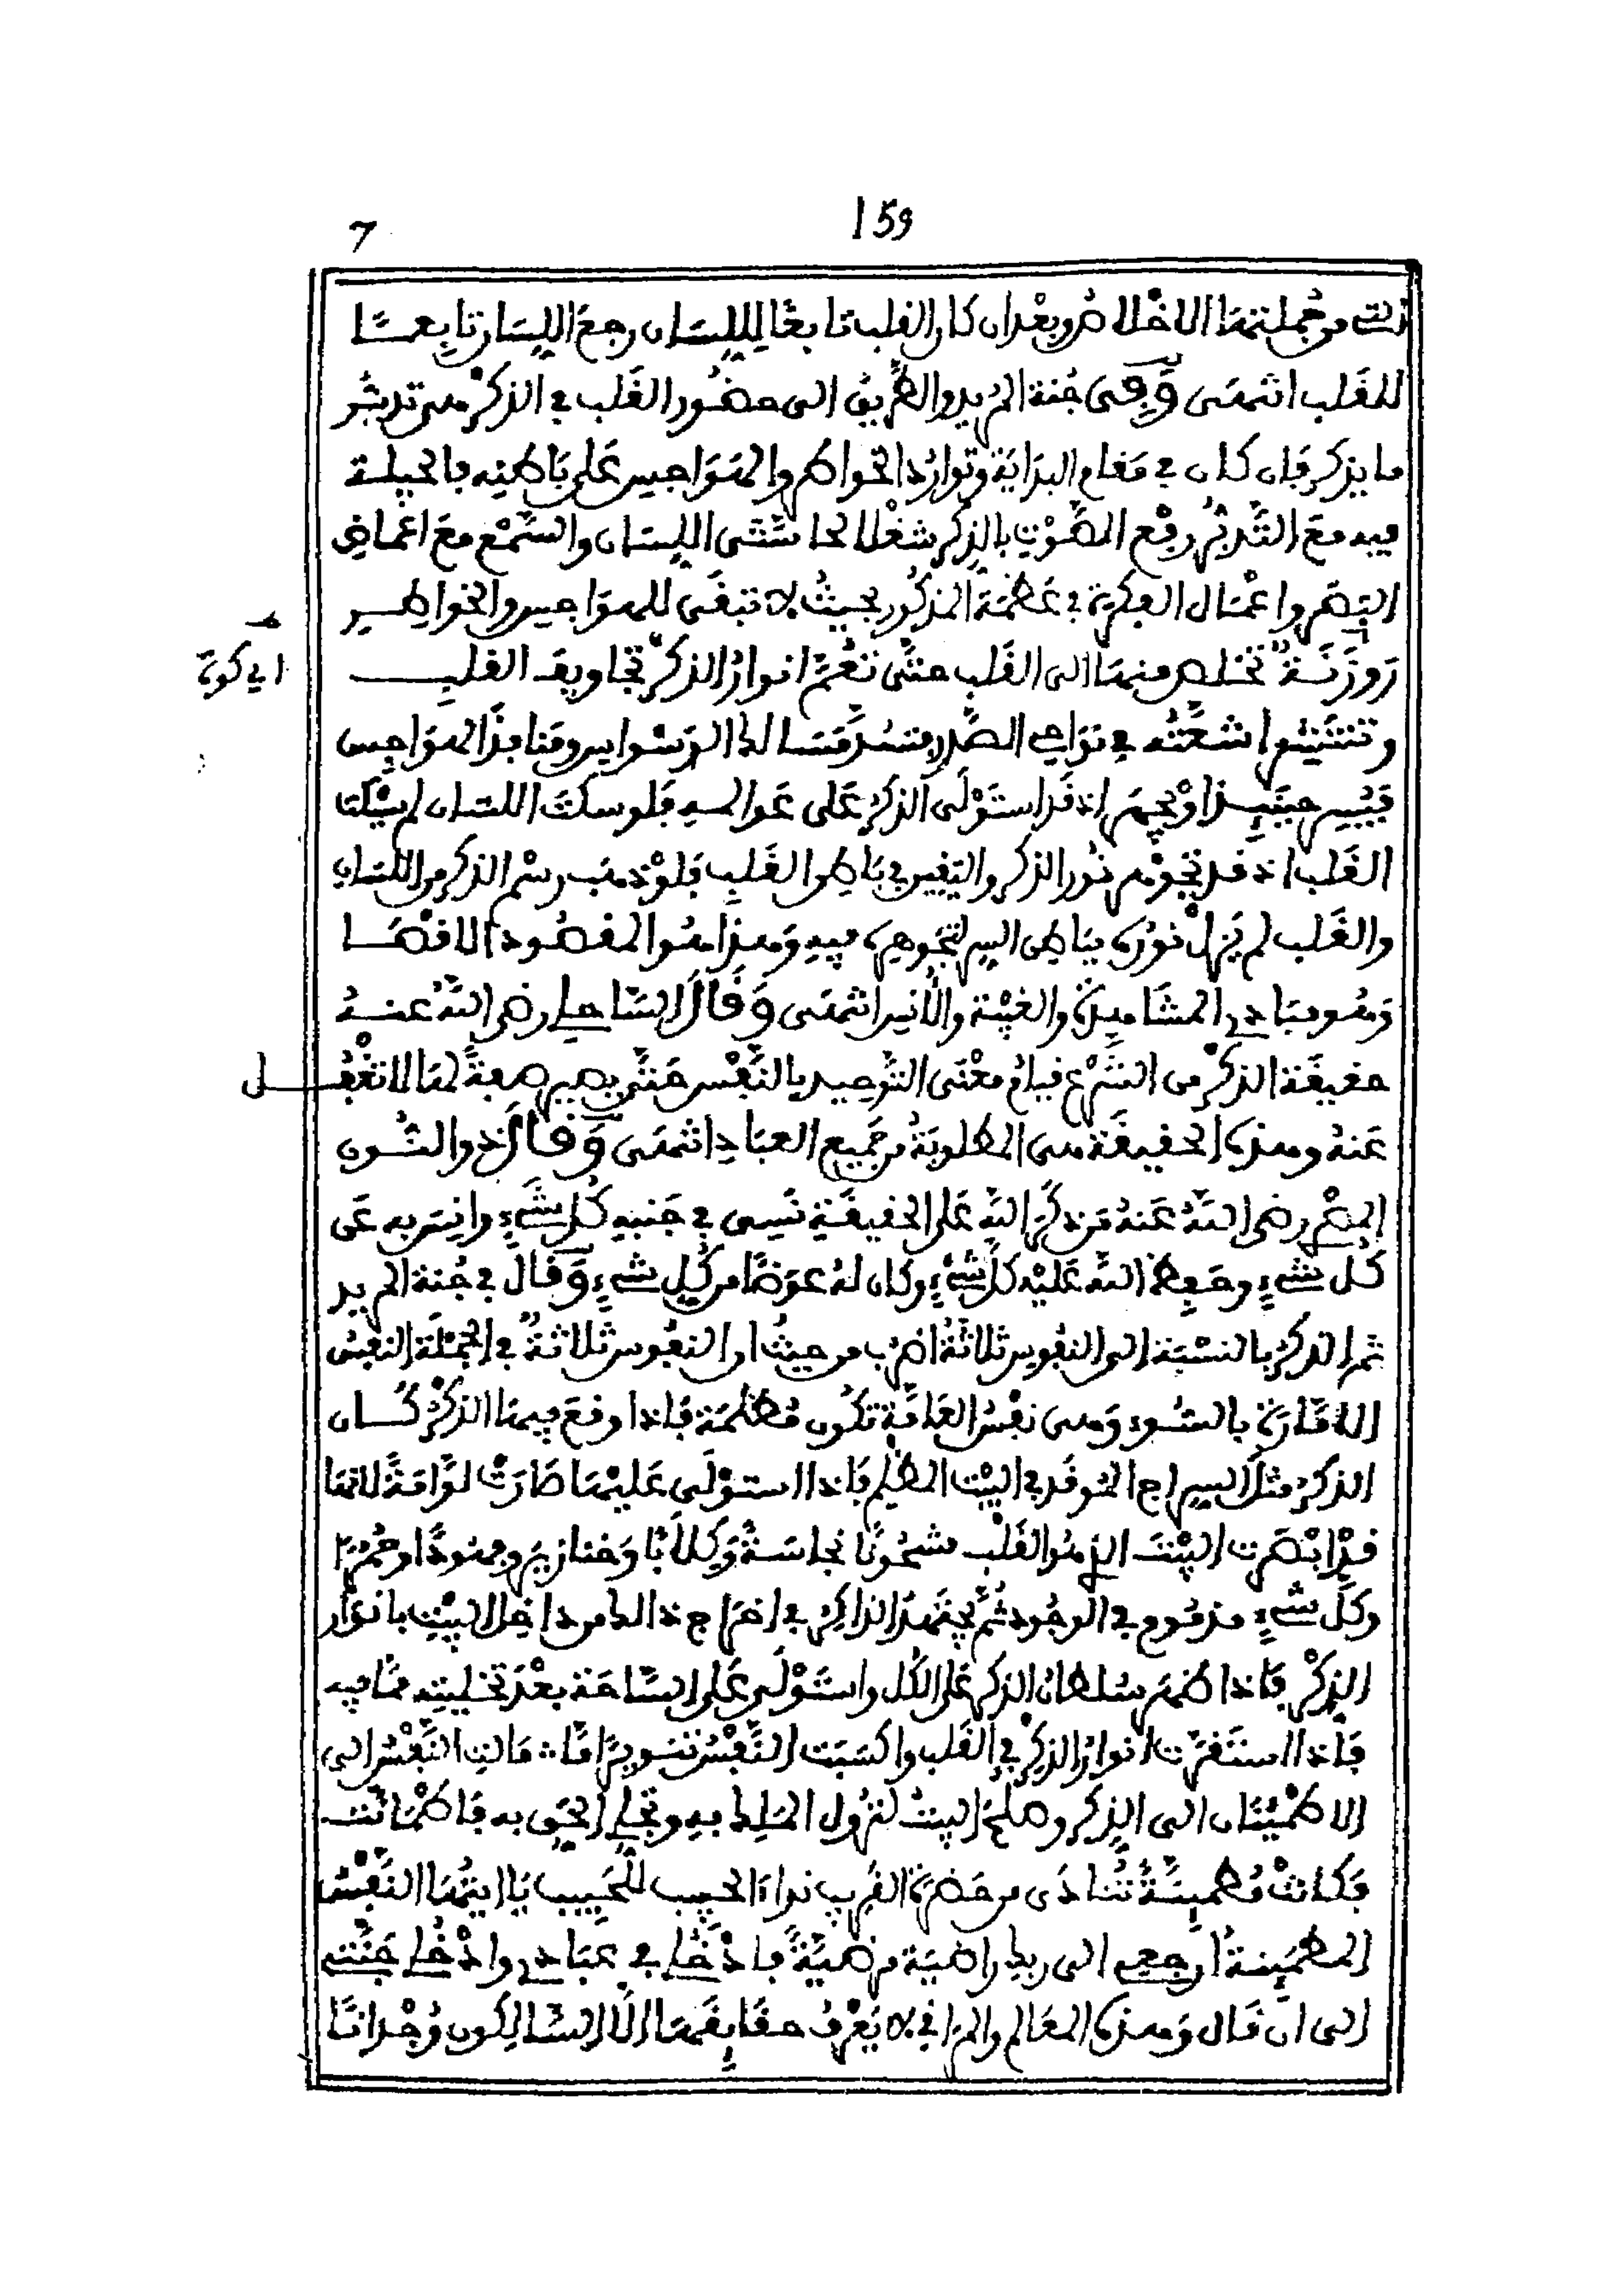 159
7
التي من جملتها الاخلاص وبعد ان كان القلب تابعًا لللسان رجع اللسان تابعــا
للقلب انتهى وَفِى جُنة المريد والطريق الى حضور القلب في الذكر هى تدبّر
ما يذكر فان كان في مقام البداية وتوارُد الخواطر والهَوَاجس على بَاطنِه فالحيلة
فيه معَ التّدبّر رفع الصّوْتِ بالذكر شغْلا لحاسّتَى اللسَان والسّمْع معَ اغماضِ
البَصَر واعْمَال الفكرة في عَظمَة المذكُور بحيثُ لا تبقَى للهوَاجس والخواطــر
رَوزَنَةٌ تخلص منها الى القَلب حتّى تعُمّ انوارُ الذكر تجاويف القلبــــ
اي كوة
وتنتَشِر اشعّتُه في نوَاحى الصّدر فتسُدّ مَسَالك الوَسْواس ومَنَافذَ الهوَاجس
فَيَيِس حينَئِذ اوْ يحجم اذ قد استَوْلَى الذكرُ عَلى عَوالمــه فلو سكتَ اللسان لم يسْكت
القَلب اذ قد تجوْهر نُور الذكر واليَقين في بَاطن القَلب فلوْ ذهَب رسْم الذكر من اللسَان
والقَلب لم يَزلْ نورُه ببَاطن السر لتجَوهرِه فيهِ وَهذا هُوا المقصُود الاقصَـــا
وَهُو مبَادى المشَاهدة والغيْبَة والأُنس انتهى وَقَالَ السّاحلى رضى اللهُ عنــهُ
حقيقَة الذكر من الشرْع قيامُ معْنَى التّوحيد بالنّفْس حَتّى يصير صفةً لها لا تغْفُــل
عَنهُ وهذه الحقيقَة هى المطلوبَةُ من جَميع العبَاد انتهى وَقَالَ ذوالنّــون
المصْرى رضى اللهُ عَنهُ مَن ذكَرَ اللهَ عَلى الحقيقَةِ نَسِى في جَنبهِ كُل شىءٍ وانِسَ به عَن
كُل شىءٍ وحَفِظ اللهُ عَليْه كلّ شىءٍ وكان لهُ عوَضًا من كُل شىءٍ وَقَالَ في جُنة المريد
ثم الذكرُ بالنسْبَة الى النفُوس ثلاثَةُ اضرُب من حيثُ ان النفُوس ثلاثةٌ في الجُمْلَة النفسُ
الامّارَة بالسّوء وَهى نفْسُ العَامّةِ تكُون مُظلمَة فاذا وقعَ فيها الذكرُ كــان
الذكرُ مثلَ السراج المُوقَد في البيْت المظلم فاذا استوْلَى عَليْهَا صَارَتْ لوّامَةً لانها
قدْ ابْصَرت البيْتَ الذى هُو القَلْب مشحُونًا نجاسَةً وَكلَابًا وَخنازيرَ وفهُودًا وحُمُرا
وكلّ شىءٍ مذمُومٍ في الوجُود ثمّ يجتَهدُ الذاكِرُ في اخرَاج ذالك من داخِل البيْتِ بانوَار
الذِكْر فَاذا ظهَرَ سُلطانُ الذكر عَلى الكُل واستَوْلَى عَلى السّاحَة بعْدَ تخليتِه ممّا فيه
فَاذا استَقرّت انوارُ الذكرْ في القَلب واكسَبَت النّفْسُ تنويرًا مّا مَالتِ النّفْسُ الى
الاطْمئنَان الى الذِكر وصلُحَ البيتُ لنزُول المَلِك فيهِ وتجَلى الحقّ به فَاطْمَأنّت
فكانتْ مُطمئنّةً تُنَادَى من حَضرَة القُرب نداءَ الحبيب للحَبيب يَا ايتُهَا النّفْسُ
المطمَئِنةُ ارجعى الى ربكِ راضيَة مرضيّةً فادْخُلى في عبَادى وادْخُلى جَنّتى
الى ان قال وَهذه المعَالم والمرَاقى لا يَعْرفُ حقَايِقَهَا الّا السّالِكُون وُجْدانًا